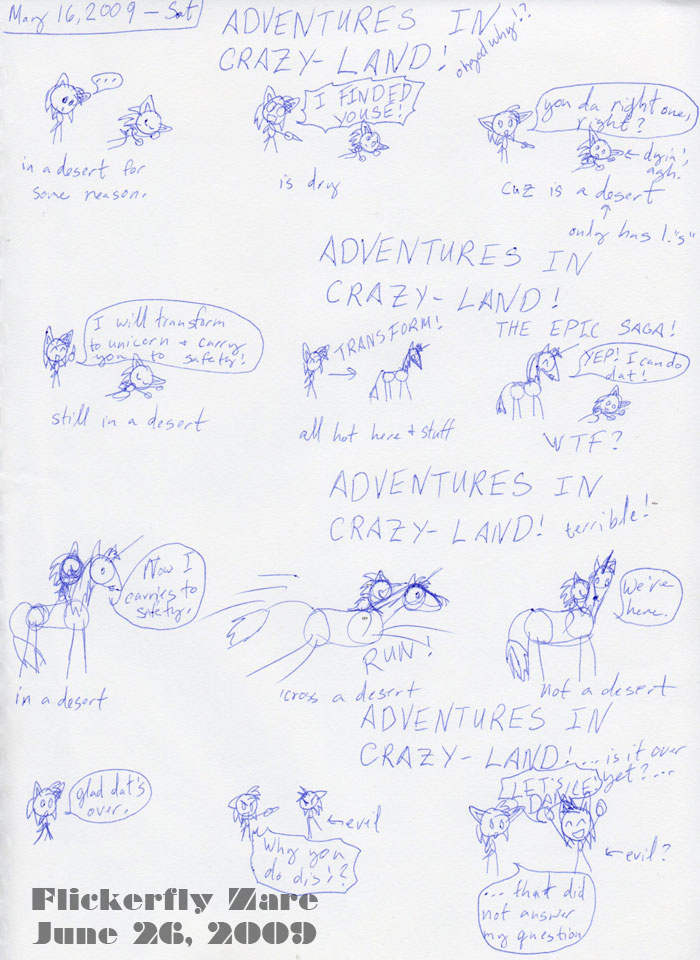 May 16, 2009 - Sat
ADVENTURES IN
CRAZY-LAND!
ohgod why!?
...
in a desert for
some reason.
I FINDED
YOUSE!
is dry
you da right one,
right?
dyin',
agh.
cuz is a desert
only has 1 "s"
ADVENTURES IN
CRAZY-LAND!
THE EPIC SAGA!
I will transform
to unicorn + carry
you to safety!
still in a desert
TRANSFORM!
all hot here + stuff
YEP! I can do
dat!
WTF?
ADVENTURES IN
CRAZY-LAND! terrible!
Now I
carries to
safety.
in a desert
RUN!
'cross a desert
We're
here.
not a desert
ADVENTURES IN
CRAZY-LAND! ...is it over
yet?...
glad dat's
over.
evil
Why you
do dis!?
evil?
... that did
not answer
my question
Flickerfly Zare
June 26, 2009